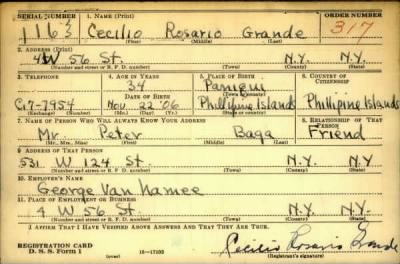 SERIAL NUMBER 1. NAME (Print) ORDER NUMBER
1163 Cecilio Rosario Grande 317
(First) (Middle) (Last)
2. ADDRESS (Print)
4 W 56 St. N.Y. N.Y.
(Number and street or R. F. D. number) (Town) (County) (State)
3. TELEPHONE 4. AGE IN YEARS 5. PLACE OF BIRTH 6. COUNTRY OF CITIZENSHIP
34
DATE OF BIRTH
Ci7-7954 Nov 22 '06 Phillipine Islands Phillipine Islands
(Exchange) (Number) (Mo.) (Day) (Yr.) (State or county)
7. NAME OF PERSON WHO WILL ALWAYS KNOW YOUR ADDRESS 8. RELATIONSHIP OF THAT PERSON
Mr. Peter Baga Friend
(Mr., Mrs., Miss) (First) (Middle) (Last)
9. ADDRESS OF THAT PERSON
531 W 124 St. N.Y. N.Y
(Number and street or R. F. D. number) (Town) (County) (State)
10. EMPLOYER'S NAME
George Van Namee
11. PLACE OF EMPLOYMENT OR BUSINESS
4 W 56 St. N.Y. N.Y.
(Number and street or R. F. D. number) (Town) (County) (State)
I AFFIRM THAT I HAVE VERIFIED ABOVE ANSWERS AND THAT THEY ARE TRUE.
REGISTRATION CARD
D. S. S. FORM 1 (over) Cecilio Rosario Grande
(Registrant's signature)